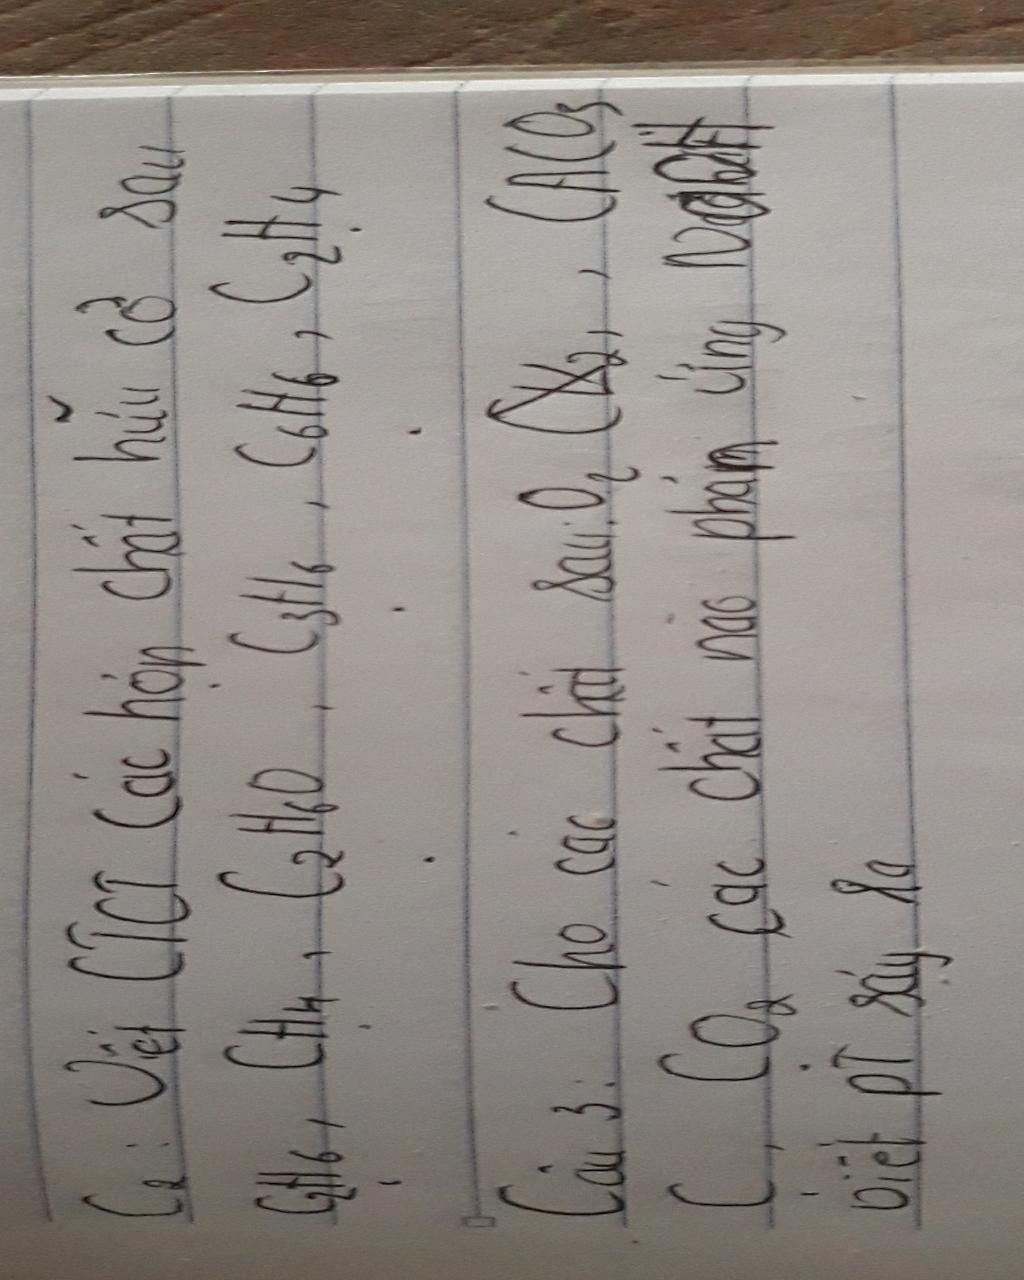 C2: Viết CTCT Các hợp chất hữu cơ sau
C₂H₆, CH₄, C₂H₆O, C₃H₆, C₆H₆, C₂H₄
Câu 3: Cho các chất sau: O₂, CACO₃
C, CO₂ các chất nào phản ứng
viết PT sảy ra